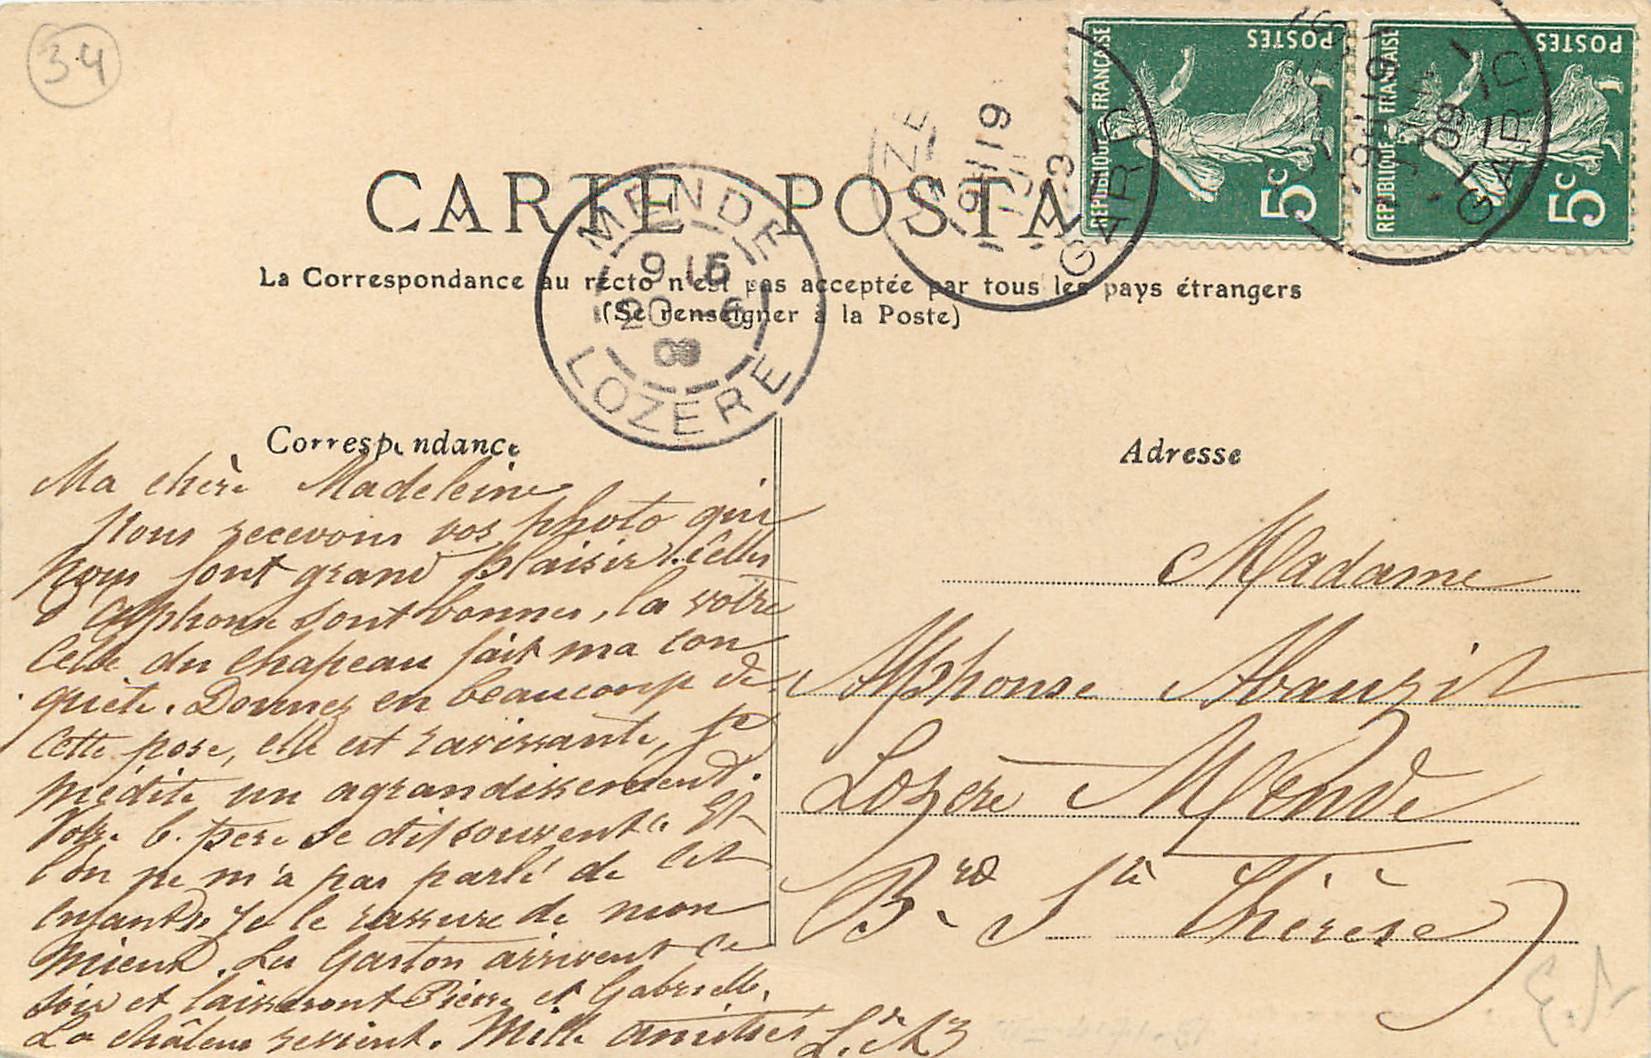 34
CARTE POSTA
La Correspondance au recto n'est pas acceptée par tous les pays étrangers
(Se renseigner à la Poste)
MENDE
9 15
20 - 6
09
LOZERE
UZE
9H 19
GARD
REPUBLIQUE FRANÇAISE
POSTES
5c
REPUBLIQUE FRANÇAISE
POSTES
5c
9H 19
09
GARD
Correspondance
Ma chère Madeleine
Nous recevons vos photo qui
nous font grand plaisir. Celles
d'Alphonse sont bonnes, la votre
Celle du chapeau fait ma con
quête. Donnez en beaucoup de
cette pose, elle est ravissante, je
médite un agrandissement.
Votre b. père se dit souvent : Et
l'on ne m'a pas parlé de cet
enfant. Je le rassure de mon
mieux. Les Gaston arrivent ce
soir et laisseront Pierre et Gabrielle.
La chaleur revient. Mille amitiés
Adresse
Madame
Alphonse Abauzit
Lozère Mende
Brd Ste Thérèse